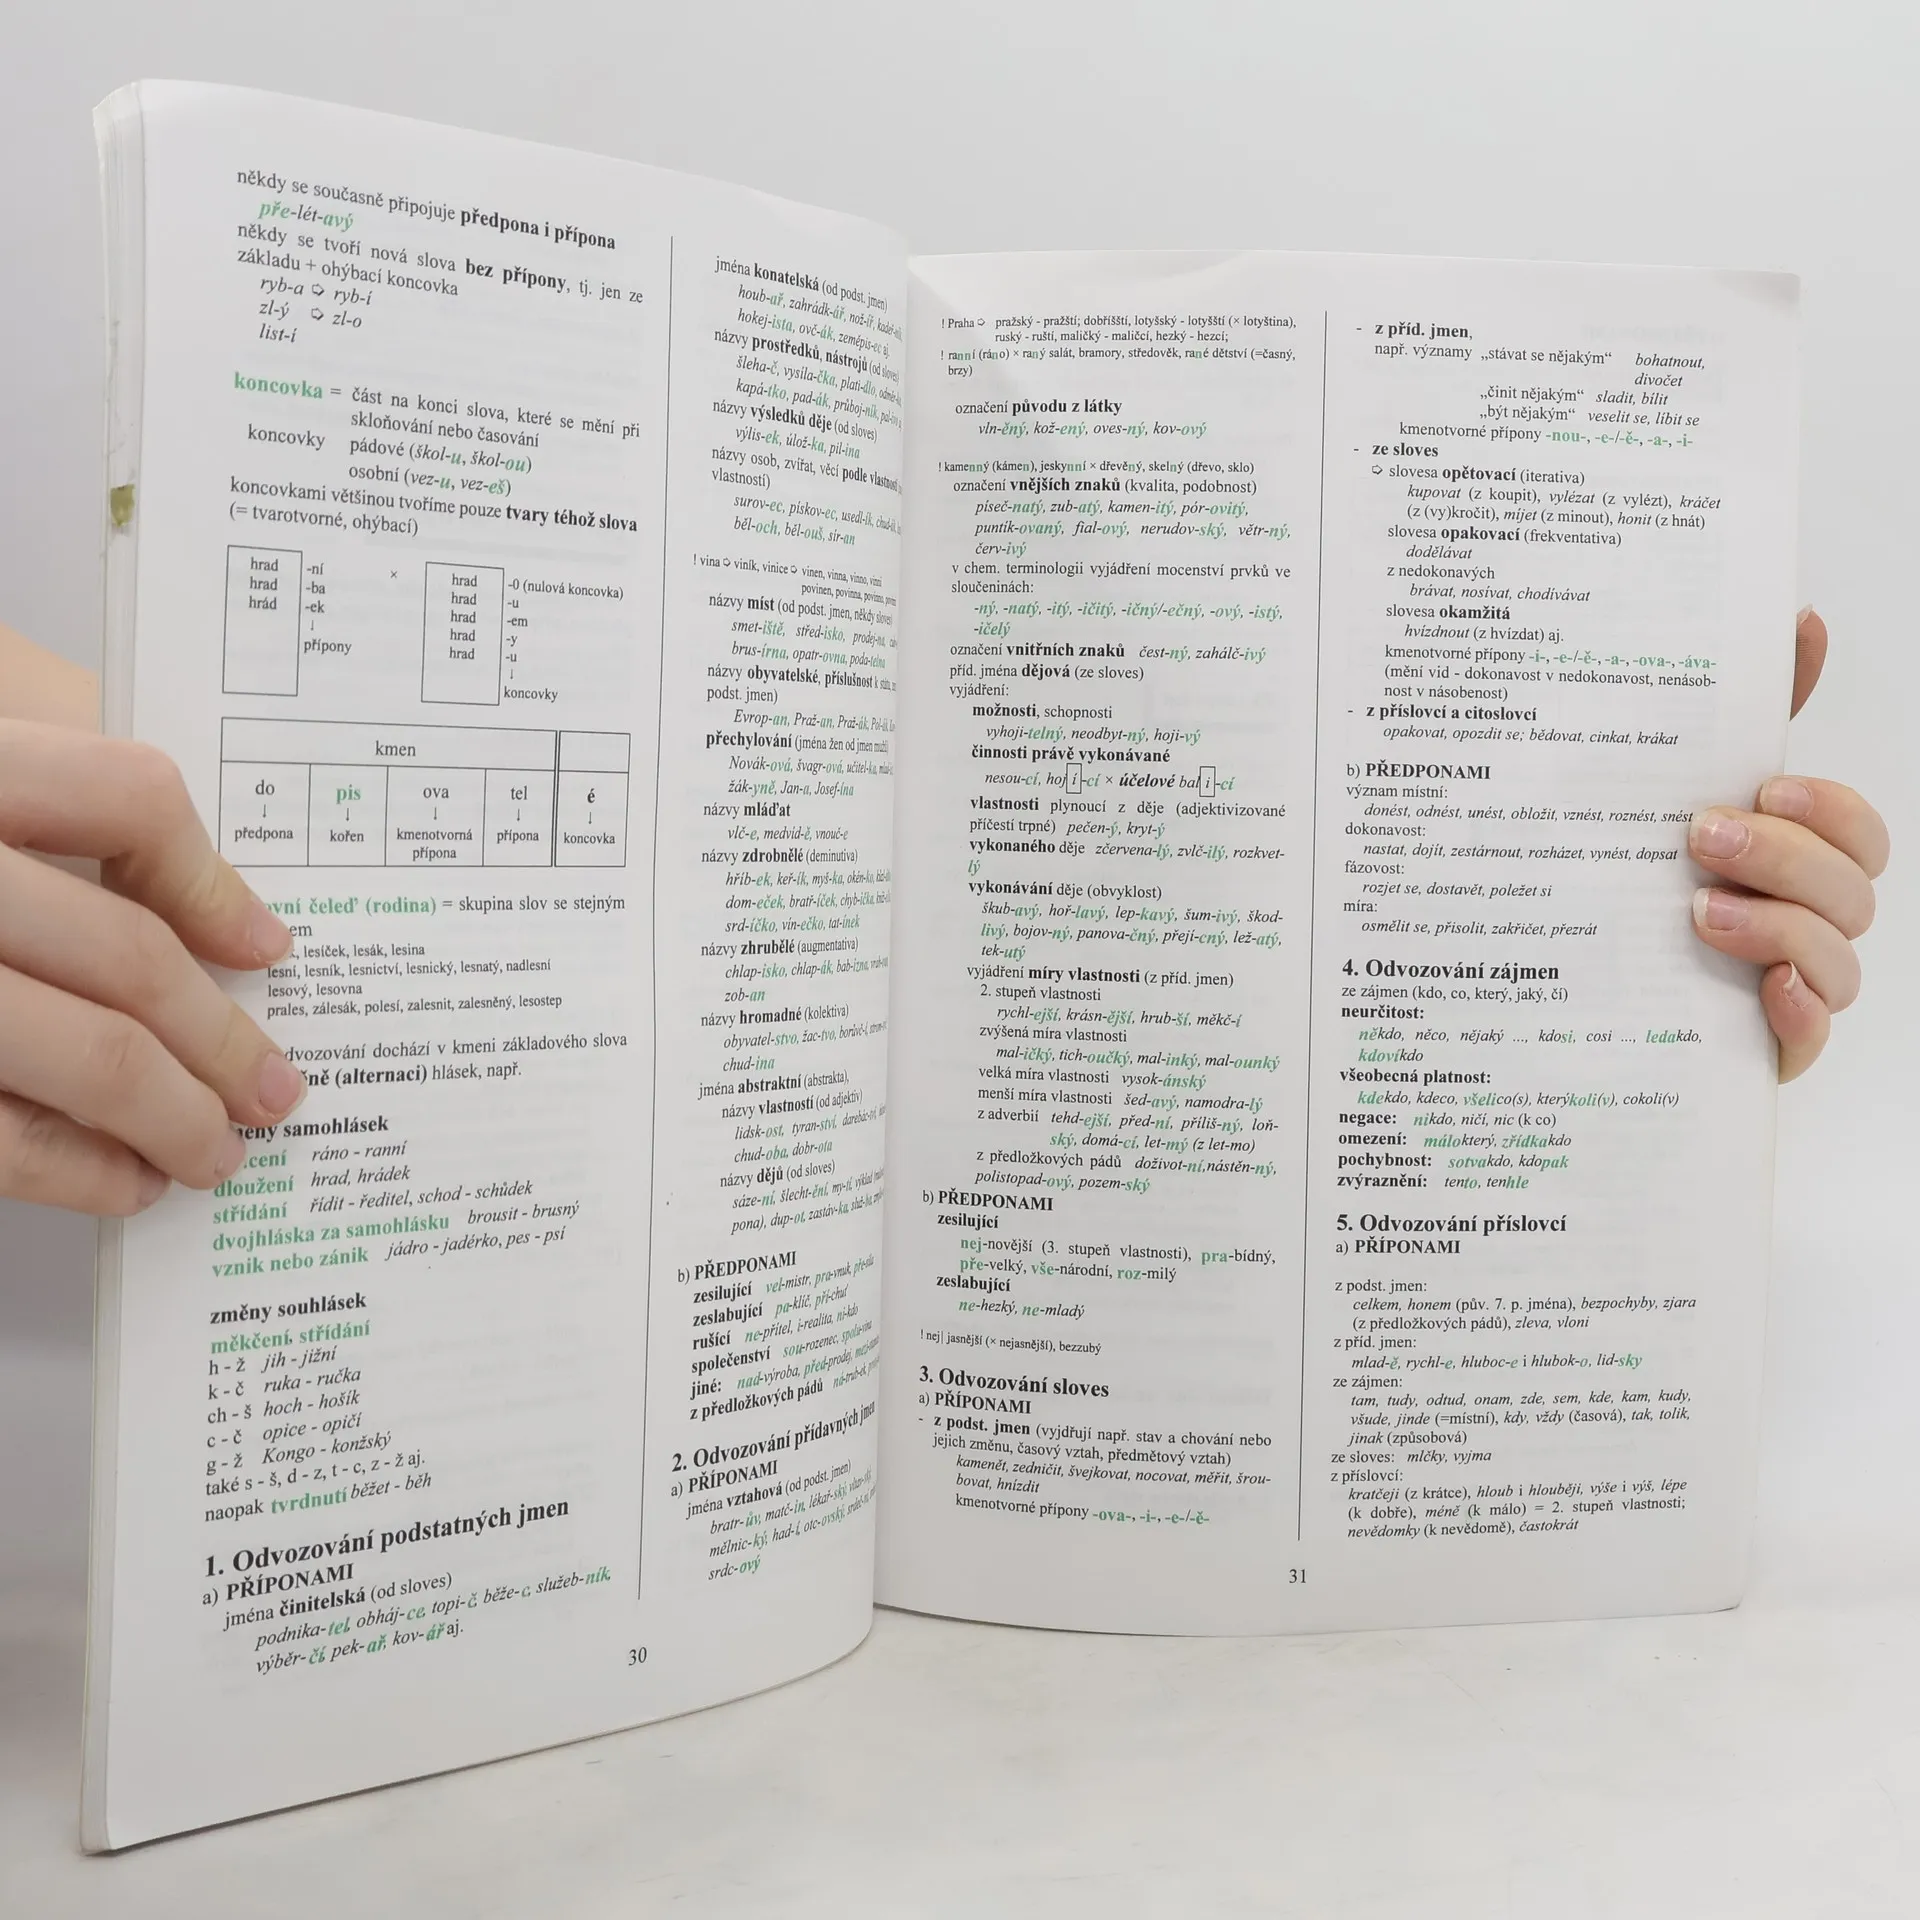 někdy se současně připojuje předpona i přípona
pře-lét-avý
někdy se tvoří nová slova bez přípony, tj. jen ze
základu + ohýbací koncovka
ryb-a ➪ ryb-í
zl-ý ➪ zl-o
list-í
koncovka = část na konci slova, které se mění při
skloňování nebo časování
koncovky pádové (škol-u, škol-ou)
osobní (vez-u, vez-eš)
koncovkami většinou tvoříme pouze tvary téhož slova
(= tvarotvorné, ohýbací)
hrad -ní
hrad -ba
hrád -ek
↓
přípony
×
hrad -0 (nulová koncovka)
hrad -u
hrad -em
hrad -y
hrad -u
↓
koncovky
kmen
do pis ova tel é
↓ ↓ ↓ ↓ ↓
předpona kořen kmenotvorná přípona přípona koncovka
čeleď (rodina) = skupina slov se stejným
lesíček, lesák, lesina
lesní, lesník, lesnictví, lesnický, lesnatý, nadlesní
lesový, lesovna
prales, zálesák, polesí, zalesnit, zalesněný, lesostep
dochází v kmeni základového slova
(alternaci) hlásek, např.
samohlásek
ráno - ranní
dloužení hrad, hrádek
střídání řídit - ředitel, schod - schůdek
dvojhláska za samohlásku brousit - brusný
vznik nebo zánik jádro - jadérko, pes - psí
změny souhlásek
měkčení, střídání
h - ž jih - jižní
k - č ruka - ručka
ch - š hoch - hošík
c - č opice - opičí
g - ž Kongo - konžský
také s - š, d - z, t - c, z - ž aj.
naopak tvrdnutí běžet - běh
1. Odvozování podstatných jmen
a) PŘÍPONAMI
jména činitelská (od sloves)
podnika-tel, obháj-ce, topi-č, běže-c, služeb-ník,
výběr-čí, pek-ař, kov-ář aj.
30
jména konatelská (od podst. jmen)
houb-ař, zahrádk-ář, nož-íř,
hokej-ista, ovč-ák, zeměpis-ec aj.
názvy prostředků, nástrojů (od sloves)
šleha-č, vysíla-čka, plati-dlo,
kapá-tko, pad-ák, průboj-ník,
názvy výsledků děje (od sloves)
výlis-ek, úlož-ka, pil-ina
názvy osob, zvířat, věcí podle vlastnosti
vlastností)
surov-ec, pískov-ec, usedl-ík,
běl-och, běl-ouš, sir-an
! vina ➪ viník, vinice ➪ vinen, vinna, vinno, vinni
povinen, povinna, povinno,
názvy míst (od podst. jmen, někdy sloves)
smet-iště, střed-isko, prodej-na,
brus-írna, opatr-ovna, poda-telna
názvy obyvatelské, příslušnost k
podst. jmen)
Evrop-an, Praž-an, Praž-ák, Pol-ák,
přechylování (jména žen od jmen mužů)
Novák-ová, švagr-ová, učitel-ka,
žák-yně, Jan-a, Josef-ína
názvy mláďat
vlč-e, medvíd-ě, vnouč-e
názvy zdrobnělé (deminutiva)
hříb-ek, keř-ík, myš-ka, okén-ko,
dom-eček, bratř-íček, chyb-ička,
srd-íčko, vín-ečko, tat-ínek
názvy zhrubělé (augmentativa)
chlap-isko, chlap-ák, bab-izna,
zob-an
názvy hromadné (kolektiva)
obyvatel-stvo, žac-tvo, borůvč-í,
chud-ina
jména abstraktní (abstrakta),
názvy vlastností (od adjektiv)
lidsk-ost, tyran-ství,
chud-oba, dobr-ota
názvy dějů (od sloves)
sáze-ní, šlecht-ění, my-tí, výklad
pona), dup-ot, zastáv-ka,
b) PŘEDPONAMI
zesilující vel-mistr, pra-vnuk, pře-síla
zeslabující pa-klíč, pří-chuť
rušící ne-přítel, i-realita, ni-kdo
společenství sou-rozenec, spolu-vina
jiné: nad-výroba, před-prodej,
z předložkových pádů ná-trub-ek,
2. Odvozování přídavných jmen
a) PŘÍPONAMI
jména vztahová (od podst. jmen)
bratr-ův, matč-in, lékař-ský,
mělnic-ký, had-í, otc-ovský,
srdc-ový
! Praha ➪ pražský - pražští; dobříšští, lotyšský - lotyšští (× lotyština),
ruský - ruští, maličký - maličcí, hezký - hezcí;
! ranní (ráno) × raný salát, brambory, středověk, rané dětství (=časný,
brzy)
označení původu z látky
vln-ěný, kož-ený, oves-ný, kov-ový
! kamenný (kámen), jeskynní × dřevěný, skelný (dřevo, sklo)
označení vnějších znaků (kvalita, podobnost)
píseč-natý, zub-atý, kamen-itý, pór-ovitý,
puntík-ovaný, fial-ový, nerudov-ský, větr-ný,
červ-ivý
v chem. terminologii vyjádření mocenství prvků ve
sloučeninách:
-ný, -natý, -itý, -ičitý, -ičný/-ečný, -ový, -istý,
-ičelý
označení vnitřních znaků čest-ný, zahálč-ivý
příd. jména dějová (ze sloves)
vyjádření:
možnosti, schopnosti
vyhoji-telný, neodbyt-ný, hoji-vý
činnosti právě vykonávané
nesou-cí, hoj í -cí × účelové bal i -cí
vlastnosti plynoucí z děje (adjektivizované
příčestí trpné) pečen-ý, kryt-ý
vykonaného děje zčervena-lý, zvlč-ilý, rozkvet-
lý
vykonávání děje (obvyklost)
škub-avý, hoř-lavý, lep-kavý, šum-ivý, škod-
livý, bojov-ný, panova-čný, přejí-cný, lež-atý,
tek-utý
vyjádření míry vlastnosti (z příd. jmen)
2. stupeň vlastnosti
rychl-ejší, krásn-ější, hrub-ší, měkč-í
zvýšená míra vlastnosti
mal-ičký, tich-oučký, mal-inký, mal-ounký
velká míra vlastnosti vysok-ánský
menší míra vlastnosti šed-avý, namodra-lý
z adverbií tehd-ejší, před-ní, příliš-ný, loň-
ský, domá-cí, let-mý (z let-mo)
z předložkových pádů doživot-ní,nástěn-ný,
polistopad-ový, pozem-ský
b) PŘEDPONAMI
zesilující
nej-novější (3. stupeň vlastnosti), pra-bídný,
pře-velký, vše-národní, roz-milý
zeslabující
ne-hezký, ne-mladý
! nej| jasnější (× nejasnější), bezzubý
3. Odvozování sloves
a) PŘÍPONAMI
- z podst. jmen (vyjdřují např. stav a chování nebo
jejich změnu, časový vztah, předmětový vztah)
kamenět, zedničit, švejkovat, nocovat, měřit, šrou-
bovat, hnízdit
kmenotvorné přípony -ova-, -i-, -e-/-ě-
31
- z příd. jmen,
např. významy „stávat se nějakým“ bohatnout,
divočet
„činit nějakým“ sladit, bílit
„být nějakým“ veselit se, líbit se
kmenotvorné přípony -nou-, -e-/-ě-, -a-, -i-
- ze sloves
➪ slovesa opětovací (iterativa)
kupovat (z koupit), vylézat (z vylézt), kráčet
(z (vy)kročit), míjet (z minout), honit (z hnát)
slovesa opakovací (frekventativa)
dodělávat
z nedokonavých
brávat, nosívat, chodívávat
slovesa okamžitá
hvízdnout (z hvízdat) aj.
kmenotvorné přípony -i-, -e-/-ě-, -a-, -ova-, -áva-
(mění vid - dokonavost v nedokonavost, nenásob-
nost v násobenost)
- z příslovcí a citoslovcí
opakovat, opozdit se; bědovat, cinkat, krákat
b) PŘEDPONAMI
význam místní:
donést, odnést, unést, obložit, vznést, roznést, snést
dokonavost:
nastat, dojít, zestárnout, rozházet, vynést, dopsat
fázovost:
rozjet se, dostavět, poležet si
míra:
osmělit se, přisolit, zakřičet, přezrát
4. Odvozování zájmen
ze zájmen (kdo, co, který, jaký, čí)
neurčitost:
někdo, něco, nějaký ..., kdosi, cosi ..., ledakdo,
kdovíkdo
všeobecná platnost:
kdekdo, kdeco, všelico(s), kterýkoli(v), cokoli(v)
negace: nikdo, ničí, nic (k co)
omezení: málokterý, zřídkakdo
pochybnost: sotvakdo, kdopak
zvýraznění: tento, tenhle
5. Odvozování příslovcí
a) PŘÍPONAMI
z podst. jmen:
celkem, honem (pův. 7. p. jména), bezpochyby, zjara
(z předložkových pádů), zleva, vloni
z příd. jmen:
mlad-ě, rychl-e, hluboc-e i hlubok-o, lid-sky
ze zájmen:
tam, tudy, odtud, onam, zde, sem, kde, kam, kudy,
všude, jinde (=místní), kdy, vždy (časová), tak, tolik,
jinak (způsobová)
ze sloves: mlčky, vyjma
z příslovcí:
kratčeji (z krátce), hloub i hlouběji, výše i výš, lépe
(k dobře), méně (k málo) = 2. stupeň vlastnosti;
nevědomky (k nevědomě), častokrát